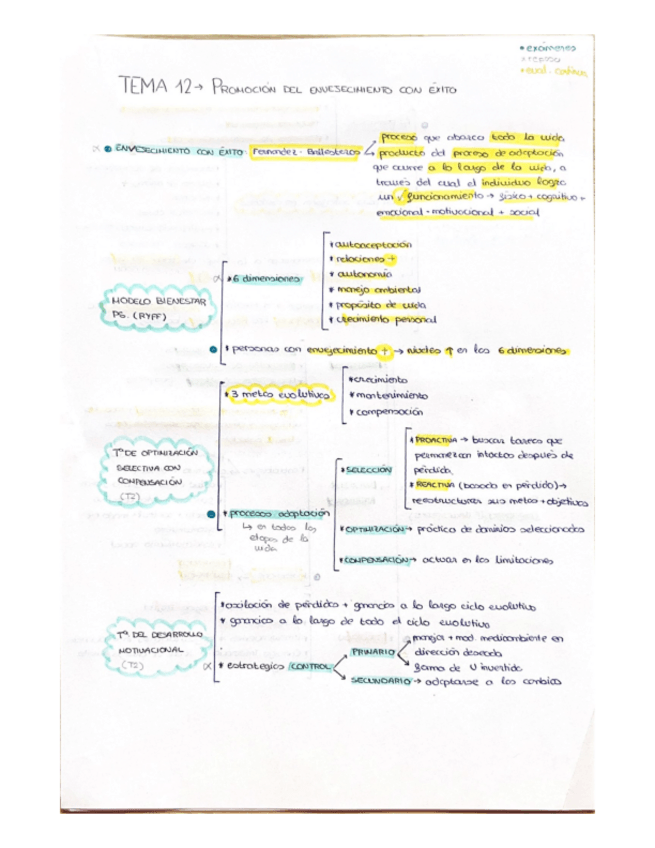 * exámenes
* eval. continua
TEMA 12 → PROMOCIÓN DEL ENVEJECIMIENTO CON ÉXITO
ENVEJECIMIENTO CON ÉXITO. Fernandez-Ballesteros
proceso que abarca toda la vida
producto del proceso de adaptación
que ocurre a lo largo de la vida, a
través del cual el individuo logra
un √ funcionamiento → físico + cognitivo +
emocional-motivacional + social
MODELO BIENESTAR
PS. (RYFF)
* 6 dimensiones
* autoaceptación
* relaciones +
* autonomía
* manejo ambiental
* propósito de vida
* crecimiento personal
* personas con envejecimiento + → niveles ↑ en las 6 dimensiones
Tª DE OPTIMIZACIÓN
SELECTIVA CON
COMPENSACIÓN
(T2)
* 3 metas evolutivas
* crecimiento
* mantenimiento
* compensación
* procesos adaptación
↳ en todas las
etapas de la
vida
* SELECCIÓN
* PROACTIVA → buscar tareas que
permanezcan intactas después de
pérdida.
* REACTIVA (basada en pérdida) →
reestructurar sus metas + objetivos
* OPTIMIZACIÓN → práctica de dominios seleccionados
* COMPENSACIÓN → actuar en las limitaciones
Tª DEL DESARROLLO
MOTIVACIONAL
(T2)
* oscilación de pérdidas + ganancias a lo largo ciclo evolutivo
* ganancias a lo largo de todo el ciclo evolutivo
* estrategias CONTROL
PRIMARIO
manejar + mod. medioambiente en
dirección deseada
forma de U invertida
SECUNDARIO → adaptarse a los cambios